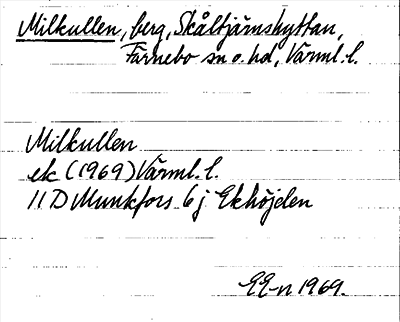 Milkullen, berg, Skåltjärnshyttan,
Färnebo sn o. hd, Värml. l.
Milkullen
ek (1969) Värml. l.
11 D Munkfors 6 j Ekhöjden
EE-n 1969.